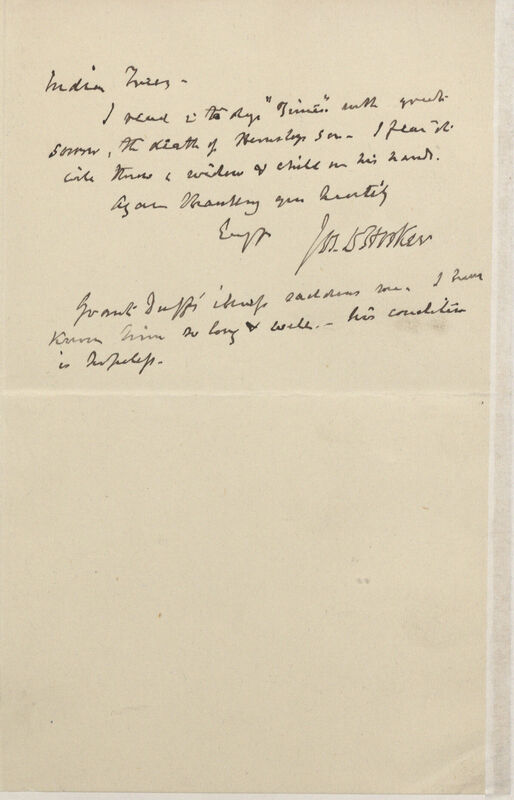 India Trees -
I read in to days "Times" with great
sorrow, the death of Hemsleys son - I fear it
will throw a widow & child on his hands.
Again thanking you heartily
Jos. D Hooker
Grant Duff's illness saddens me. I have
known him so long & well. - his condition
is hopeless.